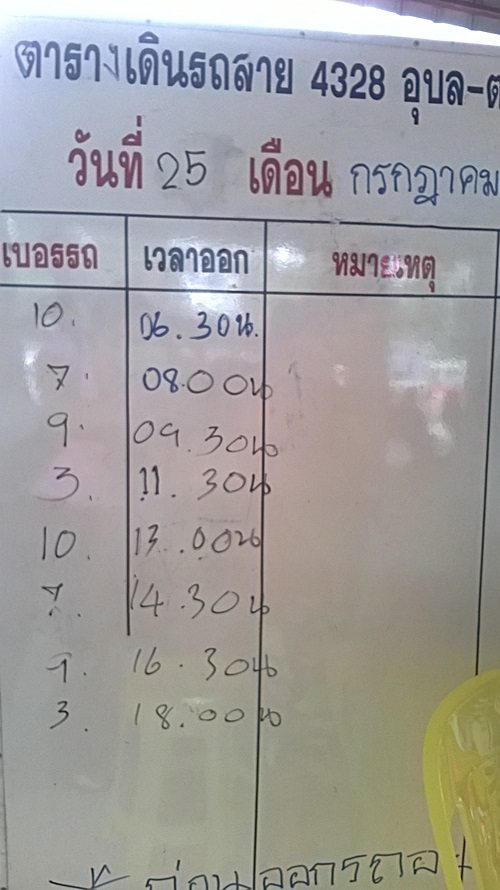 ตารางเดินรถสาย 4328 อุบล-ต
วันที่ 25 เดือน กรกฎาคม
เบอรรถ เวลาออก หมายเหตุ
10. 06.30น.
7. 08.00น
9. 09.30น
3. 11.30น
10. 13.00น
7. 14.30น
9. 16.30น
3. 18.00น
ก่อนออกรถ